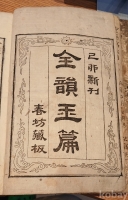 己卯新刊
全韻玉篇
春坊藏板